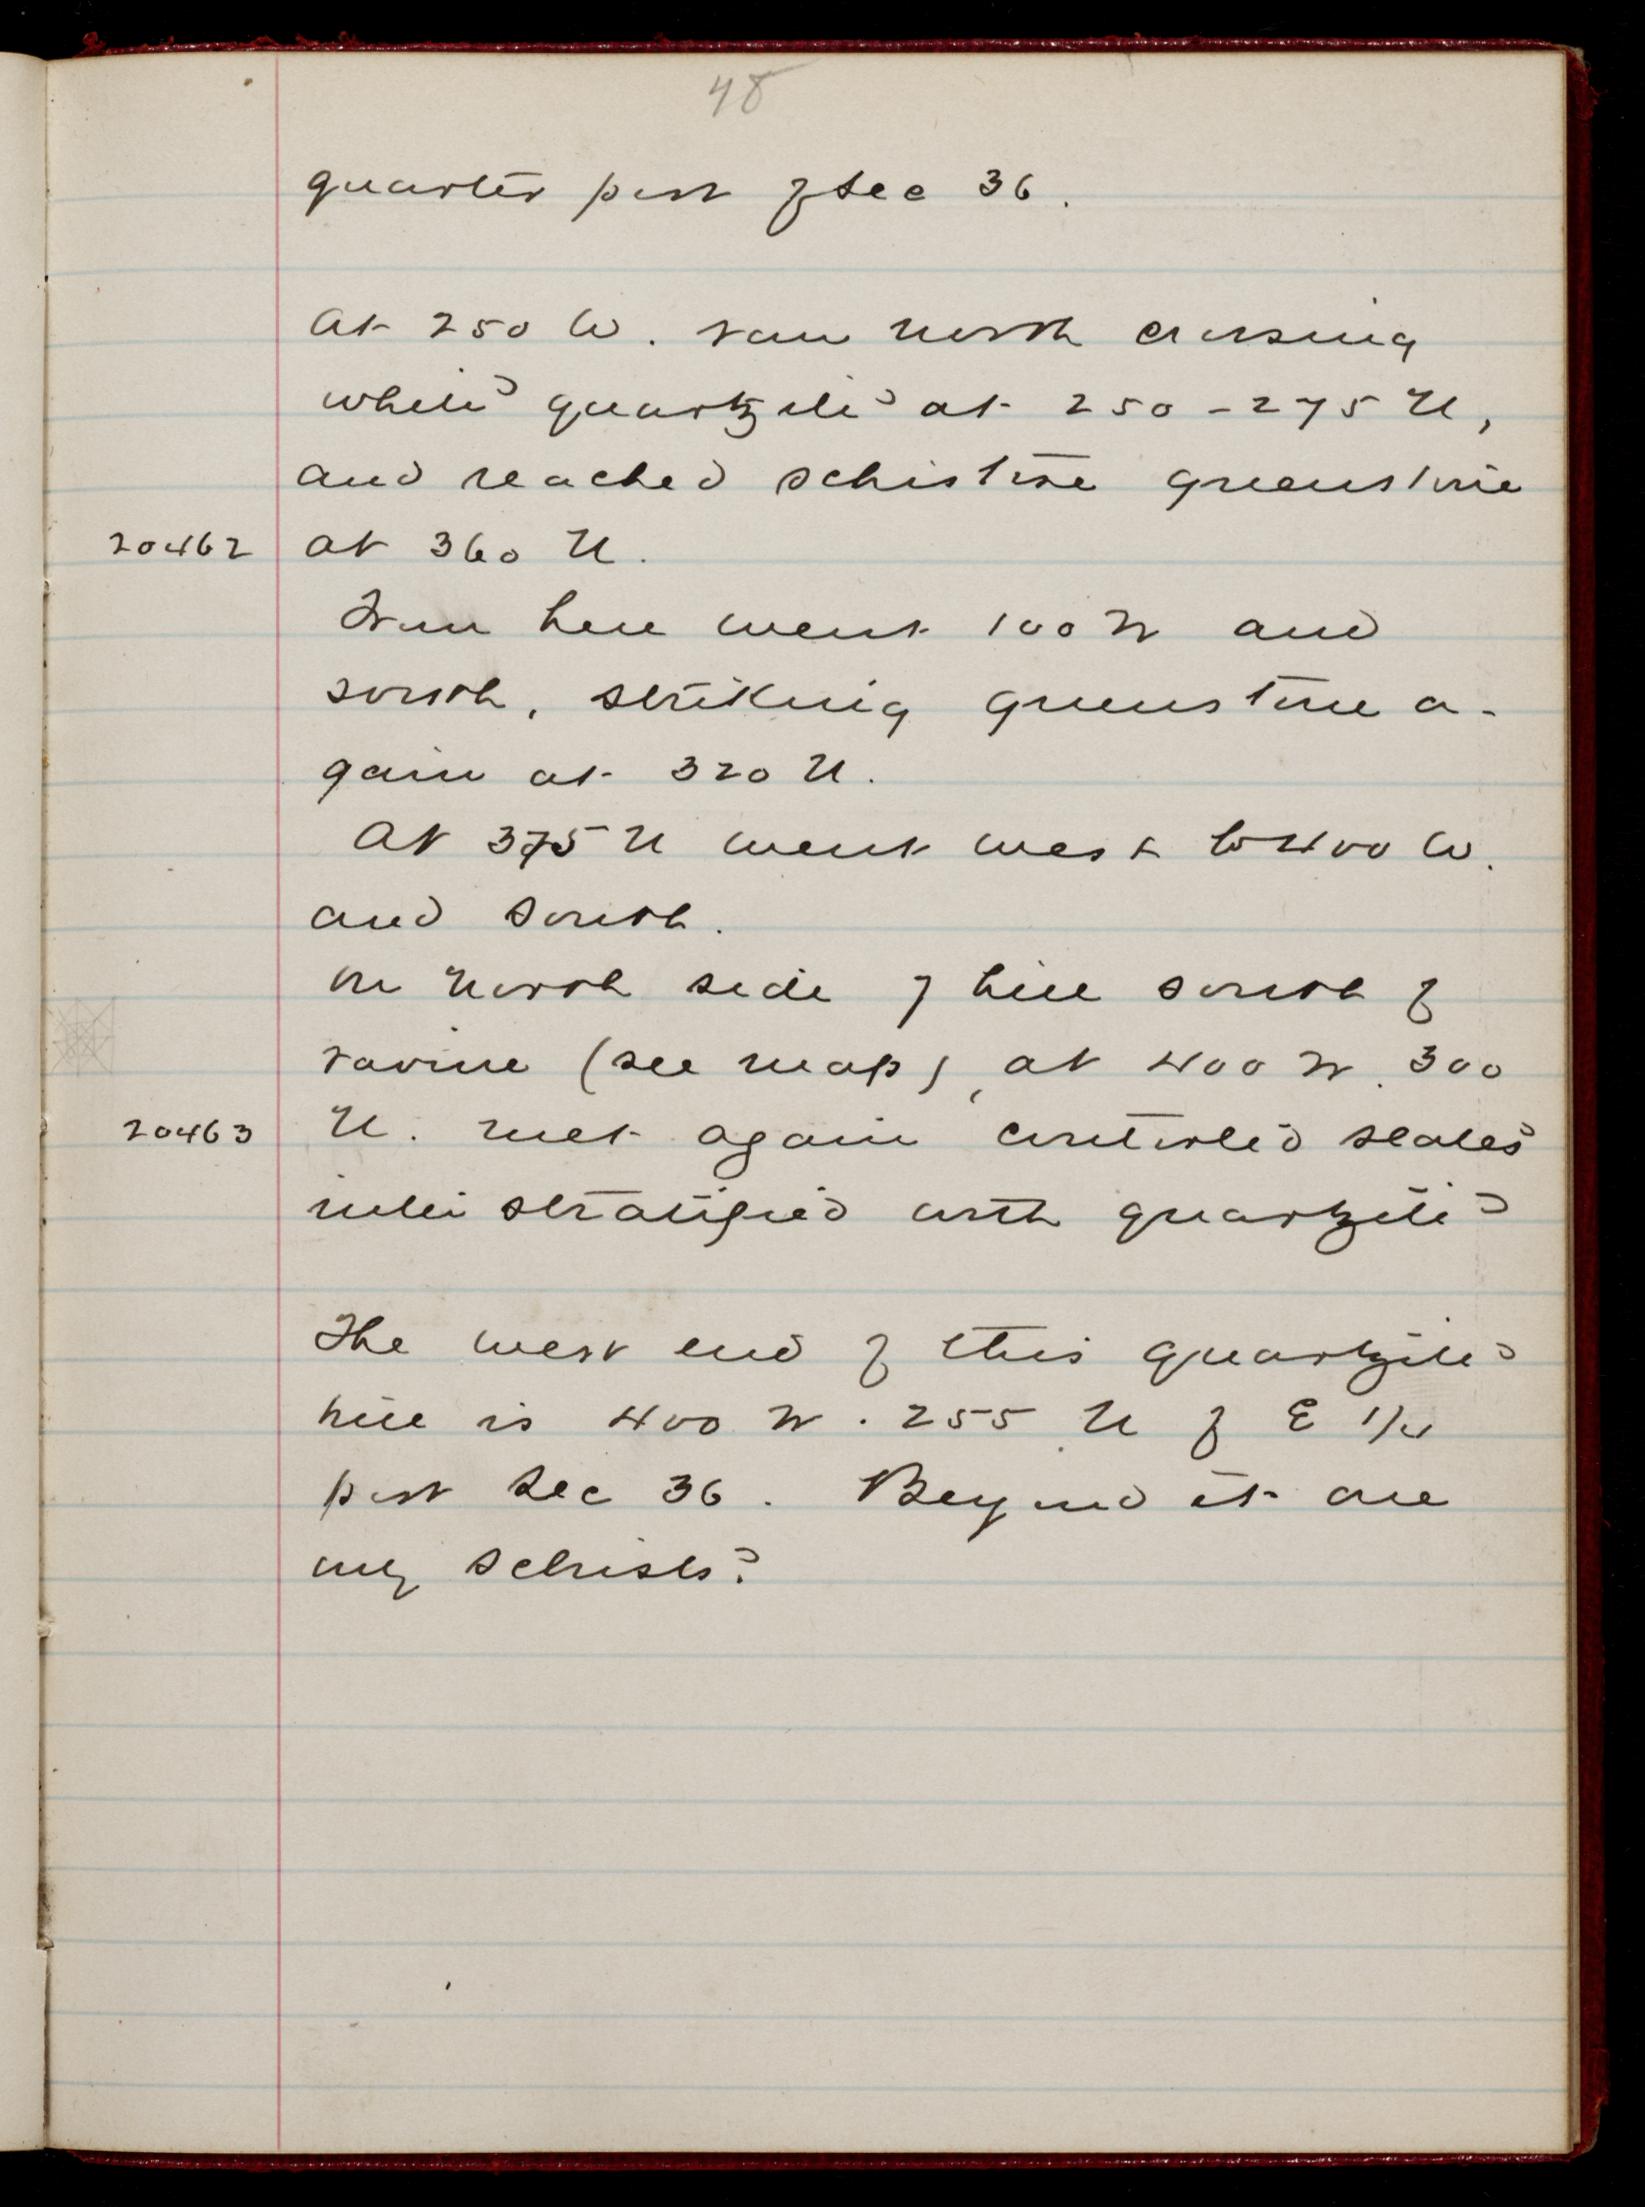 48
quarter post of Sec 36.
At 250 W. ran north crossing
white quartzite at 250-275 N,
and reached schistose greenstone
20462 at 360 N.
From here went 100 W and
south, striking greenstone a-
gain at 320 N.
At 375 N went west to 400 W.
and south.
On North side of hill south of
ravine (see map), at 400 W. 300
20463 N. met again contorted slates
inter stratified with quartzite
The west end of this quartzite
hill is 400 W. 255 N of E 1/4
post Sec 36. Beyond it are
my schists?